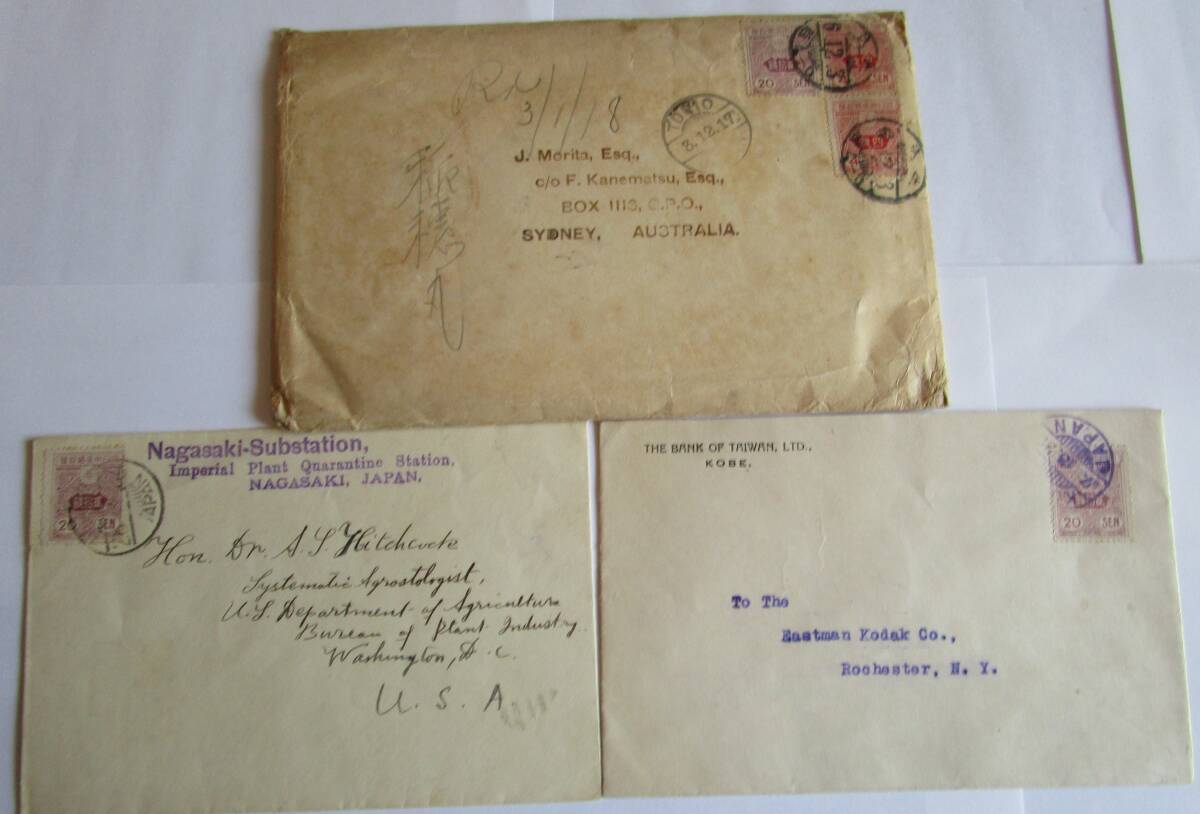 20 SEN
SEN
3/1/18
TOKIO
8.12.17
J. Morita, Esq.,
c/o F. Kanematsu, Esq.,
BOX 1113, G.P.O.,
SYDNEY, AUSTRALIA.
Nagasaki-Substation,
Imperial Plant Quarantine Station,
NAGASAKI, JAPAN.
20 SEN
JAPAN
Hon. Dr. A. S. Hitchcock
Systematic Agrostologist,
U.S. Department of Agriculture
Bureau of Plant Industry
Washington, D.C.
U. S. A
THE BANK OF TAIWAN, LTD.,
KOBE.
JAPAN
20 SEN
To The
Eastman Kodak Co.,
Rochester, N. Y.